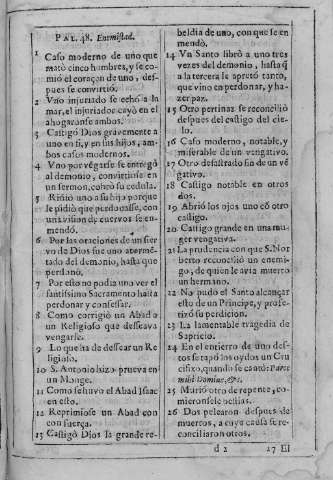 PAL. 48. Enemistad.
1 Caso moderno de uno que
matò cinco hombres, y se co-
miò el coraçon de uno, des-
pues se convirtiò.
2 Vno injuriado se echò a la
mar, el injuriador cayò en el
ahogaronse ambos.
3 Castigò Dios gravemente a
uno en sí, y en sus hijos, am-
bos casos modernos.
4 Vno por végarse se entregò
al demonio, convirtiose en
un sermon, cobrò su cedula.
5 Riñiò uno a su hijo porque
le pidiò que perdonasse, con
una vision de cuervos se en-
mendò.
6 Por las oraciones de un sier
vo de Dios fue uno atormé-
tado del demonio, hasta que
perdonò.
7 Por esto no podia uno ver el
santissimo Sacramento hasta
perdonar y confessar.
8 Como corrigiò un Abad a
un Religioso que desseava
vengarse.
9 Lo que ha de dessear un Re
ligioso.
10 S. Antonio hizo prueva en
un Monge.
11 Como se huvo el Abad Isaac
en esto.
12 Reprimiose un Abad con
con fuerça.
13 Castigò Dios la grande re-
beldia de uno, con que se en-
mendò.
14 Vn Santo librò a uno tres
vezes del demonio, hasta q̃
a la tercera le apretò tanto,
que vino en perdonar, y ha-
zer paz.
15 Otro perrinas se reconciliò
despues del castigo del cie-
lo.
16 Caso moderno, notable, y
miserable de un vengativo.
17 Otro desastrado fin de un vé
gativo.
18 Castigo notable en otros
dos.
19 Abriò los ojos uno cõ otro
castigo.
20 Castigo grande en una mu-
ger vengativa.
21 La prudencia con que S. Nor
berto reconciliò un enemi-
go, de quien le avia muerto
un hermano.
22 No pudo el Santo alcançar
esto de un Principe, y profe-
tizò su perdicion.
23 La lamentable tragedia de
Sapricio.
24 En el entierro de uno des-
tos se tapò los oydos un Cru
cifixo, quando se cantò: Parce
mihi Domine, &c.
25 Muriò otro de repente, co-
mieronsele bestias.
26 Dos pelearon despues de
muertos, a cuya causa se re-
conciliaron otros.
d 2
27 El